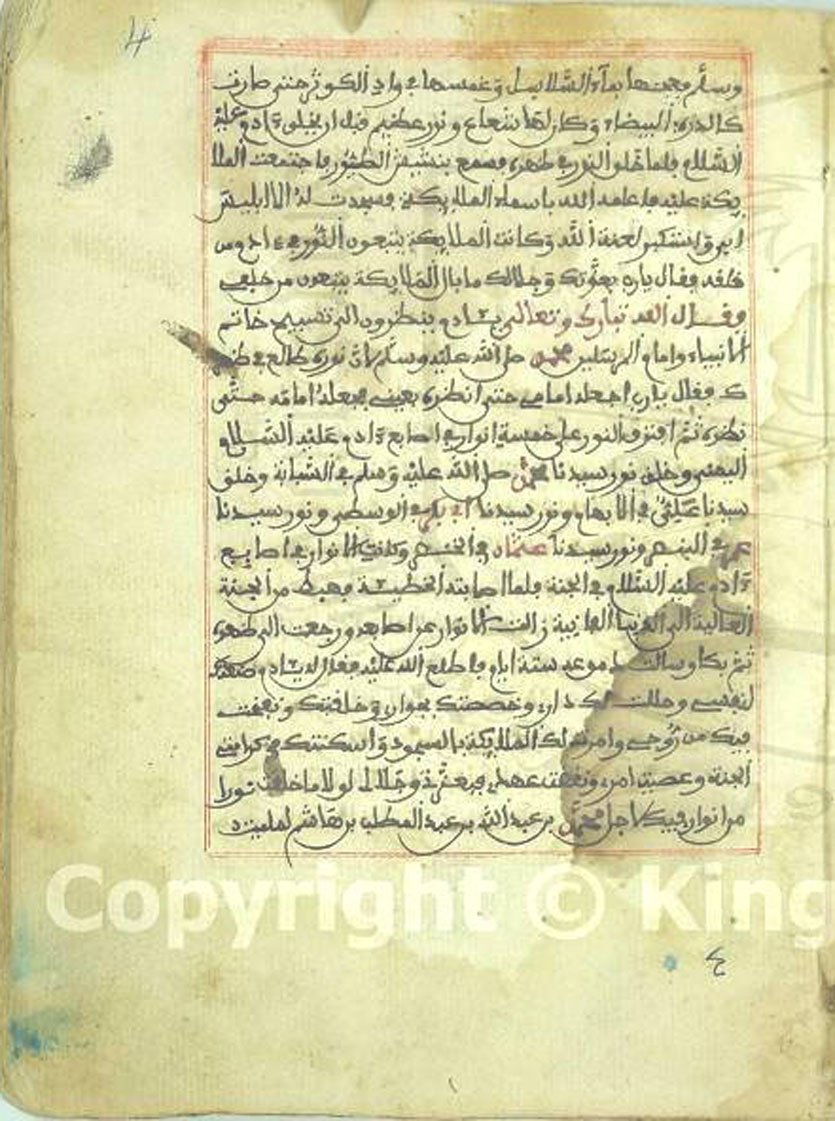 4
وسلم فعجنها بماء السلسبيل وغمسها في واد الكوثر حتى صارت
كالدرة البيضاء وكان لها شعاع ونور عظيم قبل ان يخلق ءادم عليه
السلام فلما خلق النور في ظهره فسمع بنشيش الطيور فاجتمعت الملا
يكة عليه فاعلمه الله باسماء الملايكة فسجدت له الا ابليس
ابى واستكبر لعنه الله وكانت الملايكة يتبعون النور في ءادم من
خلفه فقال يارب بعزتك وجلالك ما بال الملايكة يتبعون من خلفي
فقال الله تبارك وتعالى يـٰادم ينظرون الى تسبيح خاتم
الانبياء وامام المرسلين محمد صلى الله عليه وسلم لان نوره طالع في ظهر
ك فقال يارب اجعله امامي حتى انظره بعيني فجعله امامه حتى
نظره ثم افترق النور على خمسة انوار في اصابع ءادم عليه السلام
اليمنى وخلق نور سيدنا محمد صلى الله عليه وسلم في السبابة وخلق
سيدنا علي في الابهام ونور سيدنا ابي بكر في الوسطى ونور سيدنا
عمر في البنصر ونور سيدنا عثمان في الخنصر وكانت الانوار في اصابع
ءادم عليه السلام في الجنة فلما اصابته الخطيئة وهبط من الجنة
العالية الى الدنيا الفانية زالت الانوار عن اصابعه ورجعت الى ظهره
ثم بكا وسالت دموعه ستة ايام فاطلع الله عليه فقال له يـٰادم صنعتك
لنفسي وحللت لك داري وخصصتك بجواري وخلقتك ونفخت
فيك من روحي وامرت لك الملايكة بالسجود واسكنتك في كرامتي
الجنة وعصيت امري ونقضت عهدي فبعزتي وجلالي لولا ما خلقت نورا
من انواري فيك لاجل محمد بن عبد الله بن عبد المطلب بن هاشم لما
Copyright © King